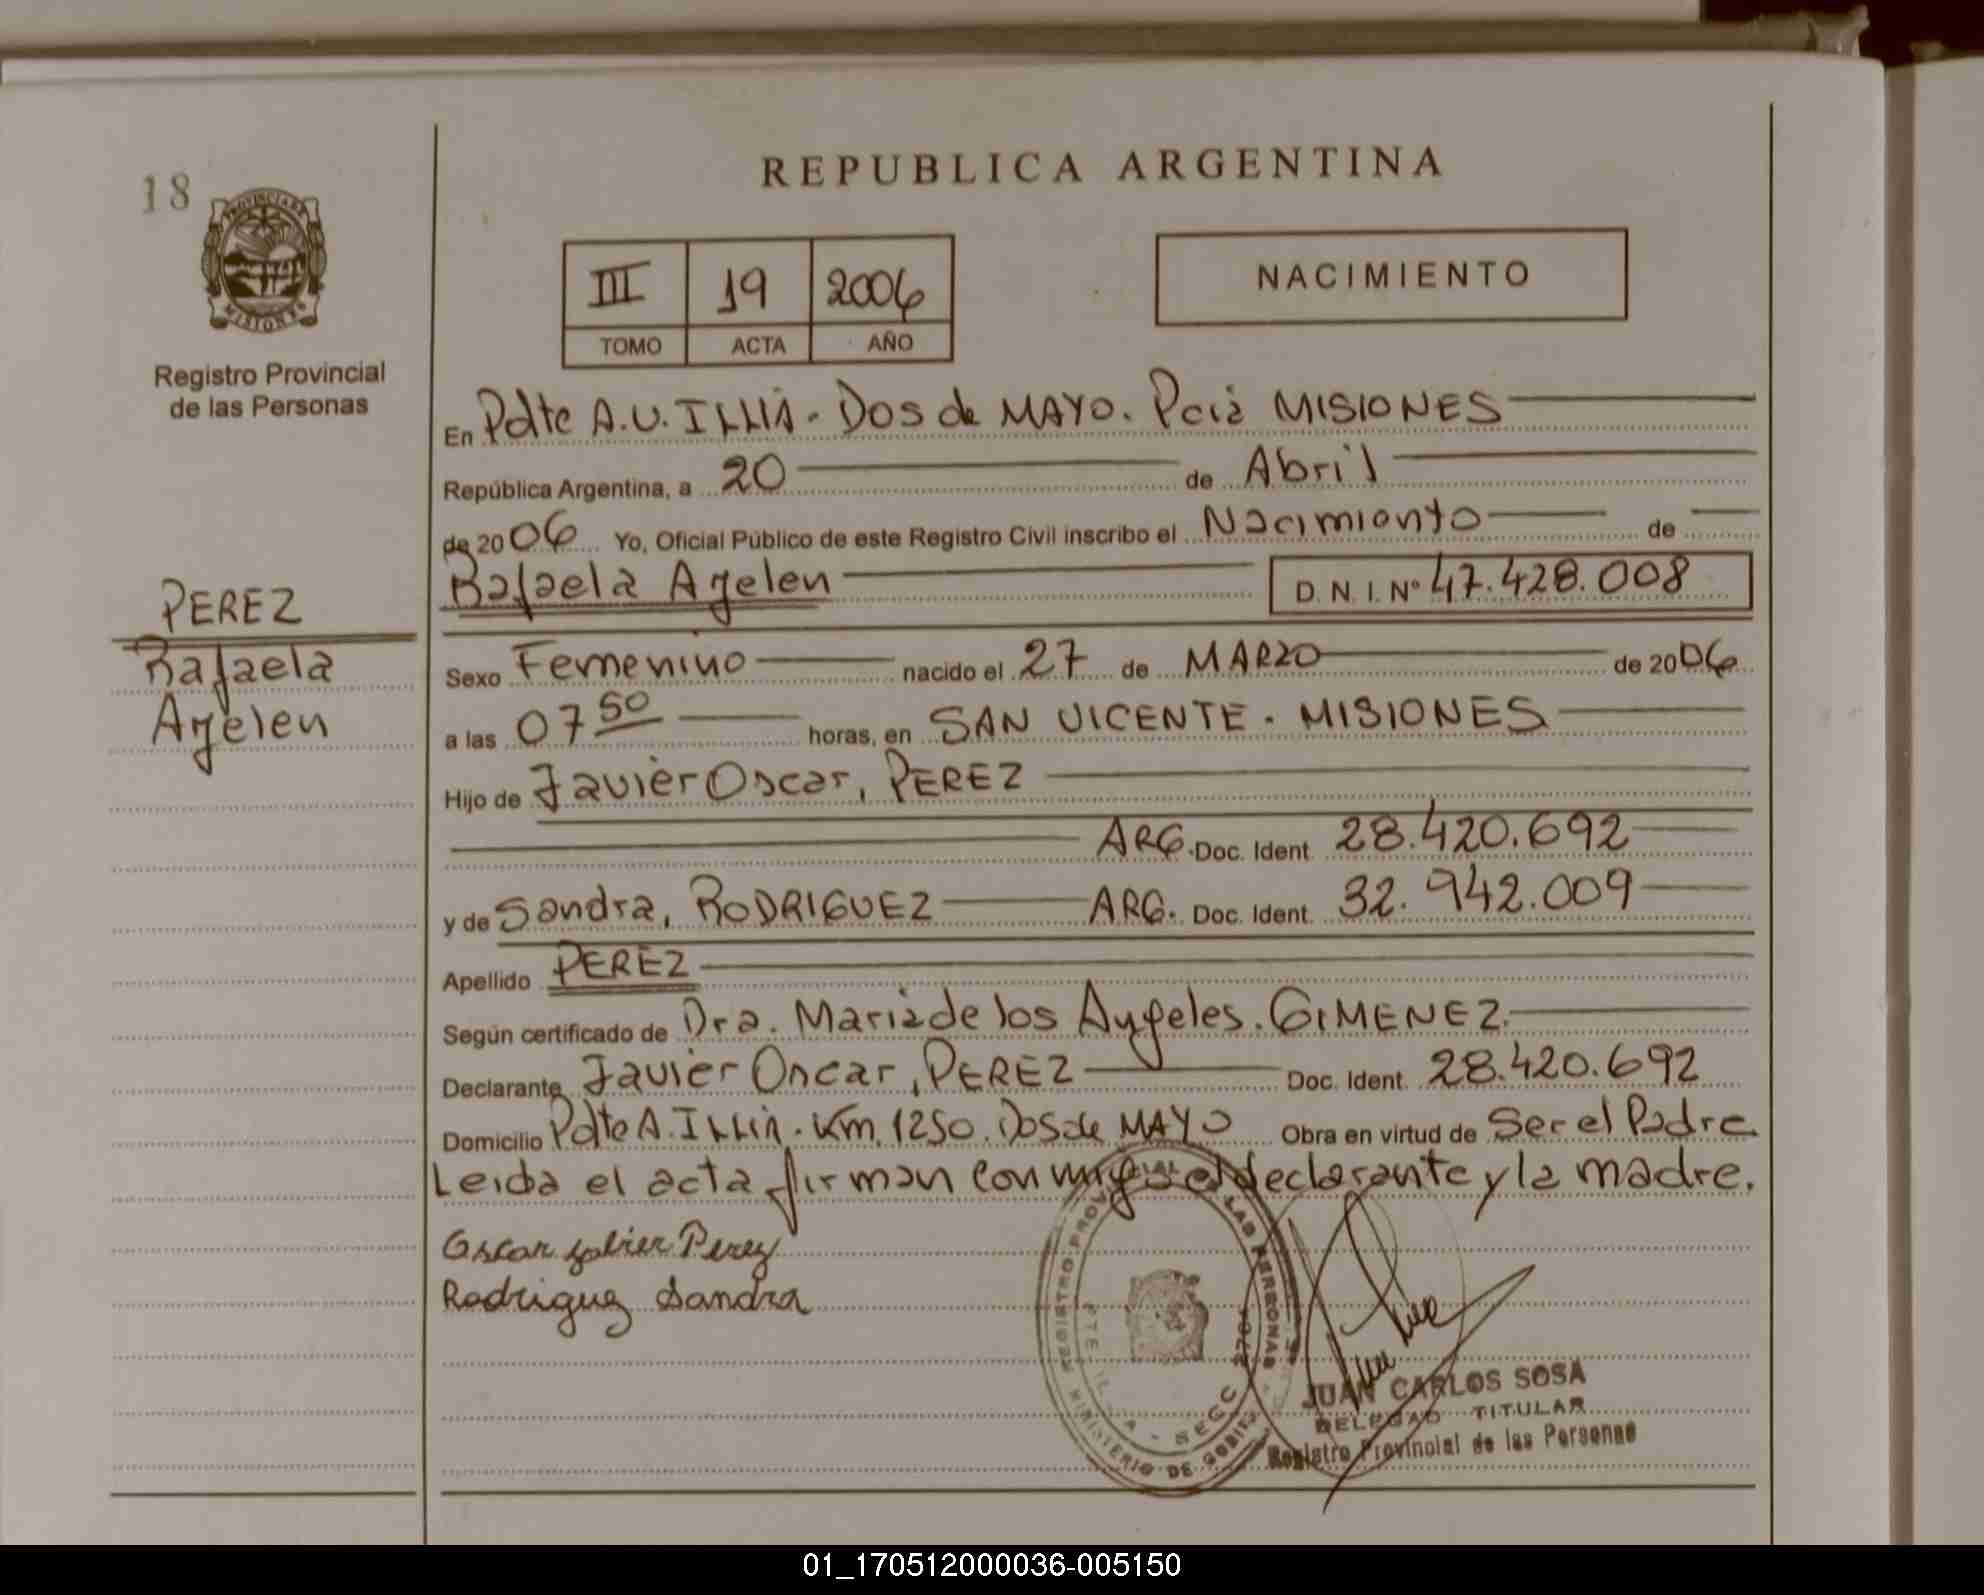 REPUBLICA ARGENTINA
18
PROVINCIA DE
MISIONES
III 19 2006
TOMO ACTA AÑO
NACIMIENTO
Registro Provincial
de las Personas
En Pdte A.U. ILLIA - DOS de MAYO. Pciá MISIONES
República Argentina, a 20 de Abril
de 2006 Yo, Oficial Público de este Registro Civil inscribo el Nacimiento de
Rafaela Ayelen D. N. I. Nº 47.428.008
PEREZ
Rafaela
Ayelen
Sexo Femenino nacido el 27 de MARZO de 2006
a las 07 50 horas, en SAN VICENTE - MISIONES
Hijo de Javier Oscar, PEREZ
ARG. Doc. Ident. 28.420.692
y de Sandra, RODRIGUEZ ARG. Doc. Ident. 32.942.009
Apellido PEREZ
Según certificado de Dra. Maria de los Angeles. GIMENEZ.
Declarante Javier Oscar, PEREZ Doc. Ident. 28.420.692
Domicilio Pdte A. ILLIA. Km. 1250. Dos de MAYO Obra en virtud de Ser el Padre
Leida el acta firman conmigo el declarante y la madre.
Oscar Javier Perez
Rodriguez Sandra
REGISTRO PROVINCIAL LAS PERSONAS
MINISTERIO DE GOBIERNO
JUAN CARLOS SOSA
DELEGADO TITULAR
Registro Provincial de las Personas
01_170512000036-005150